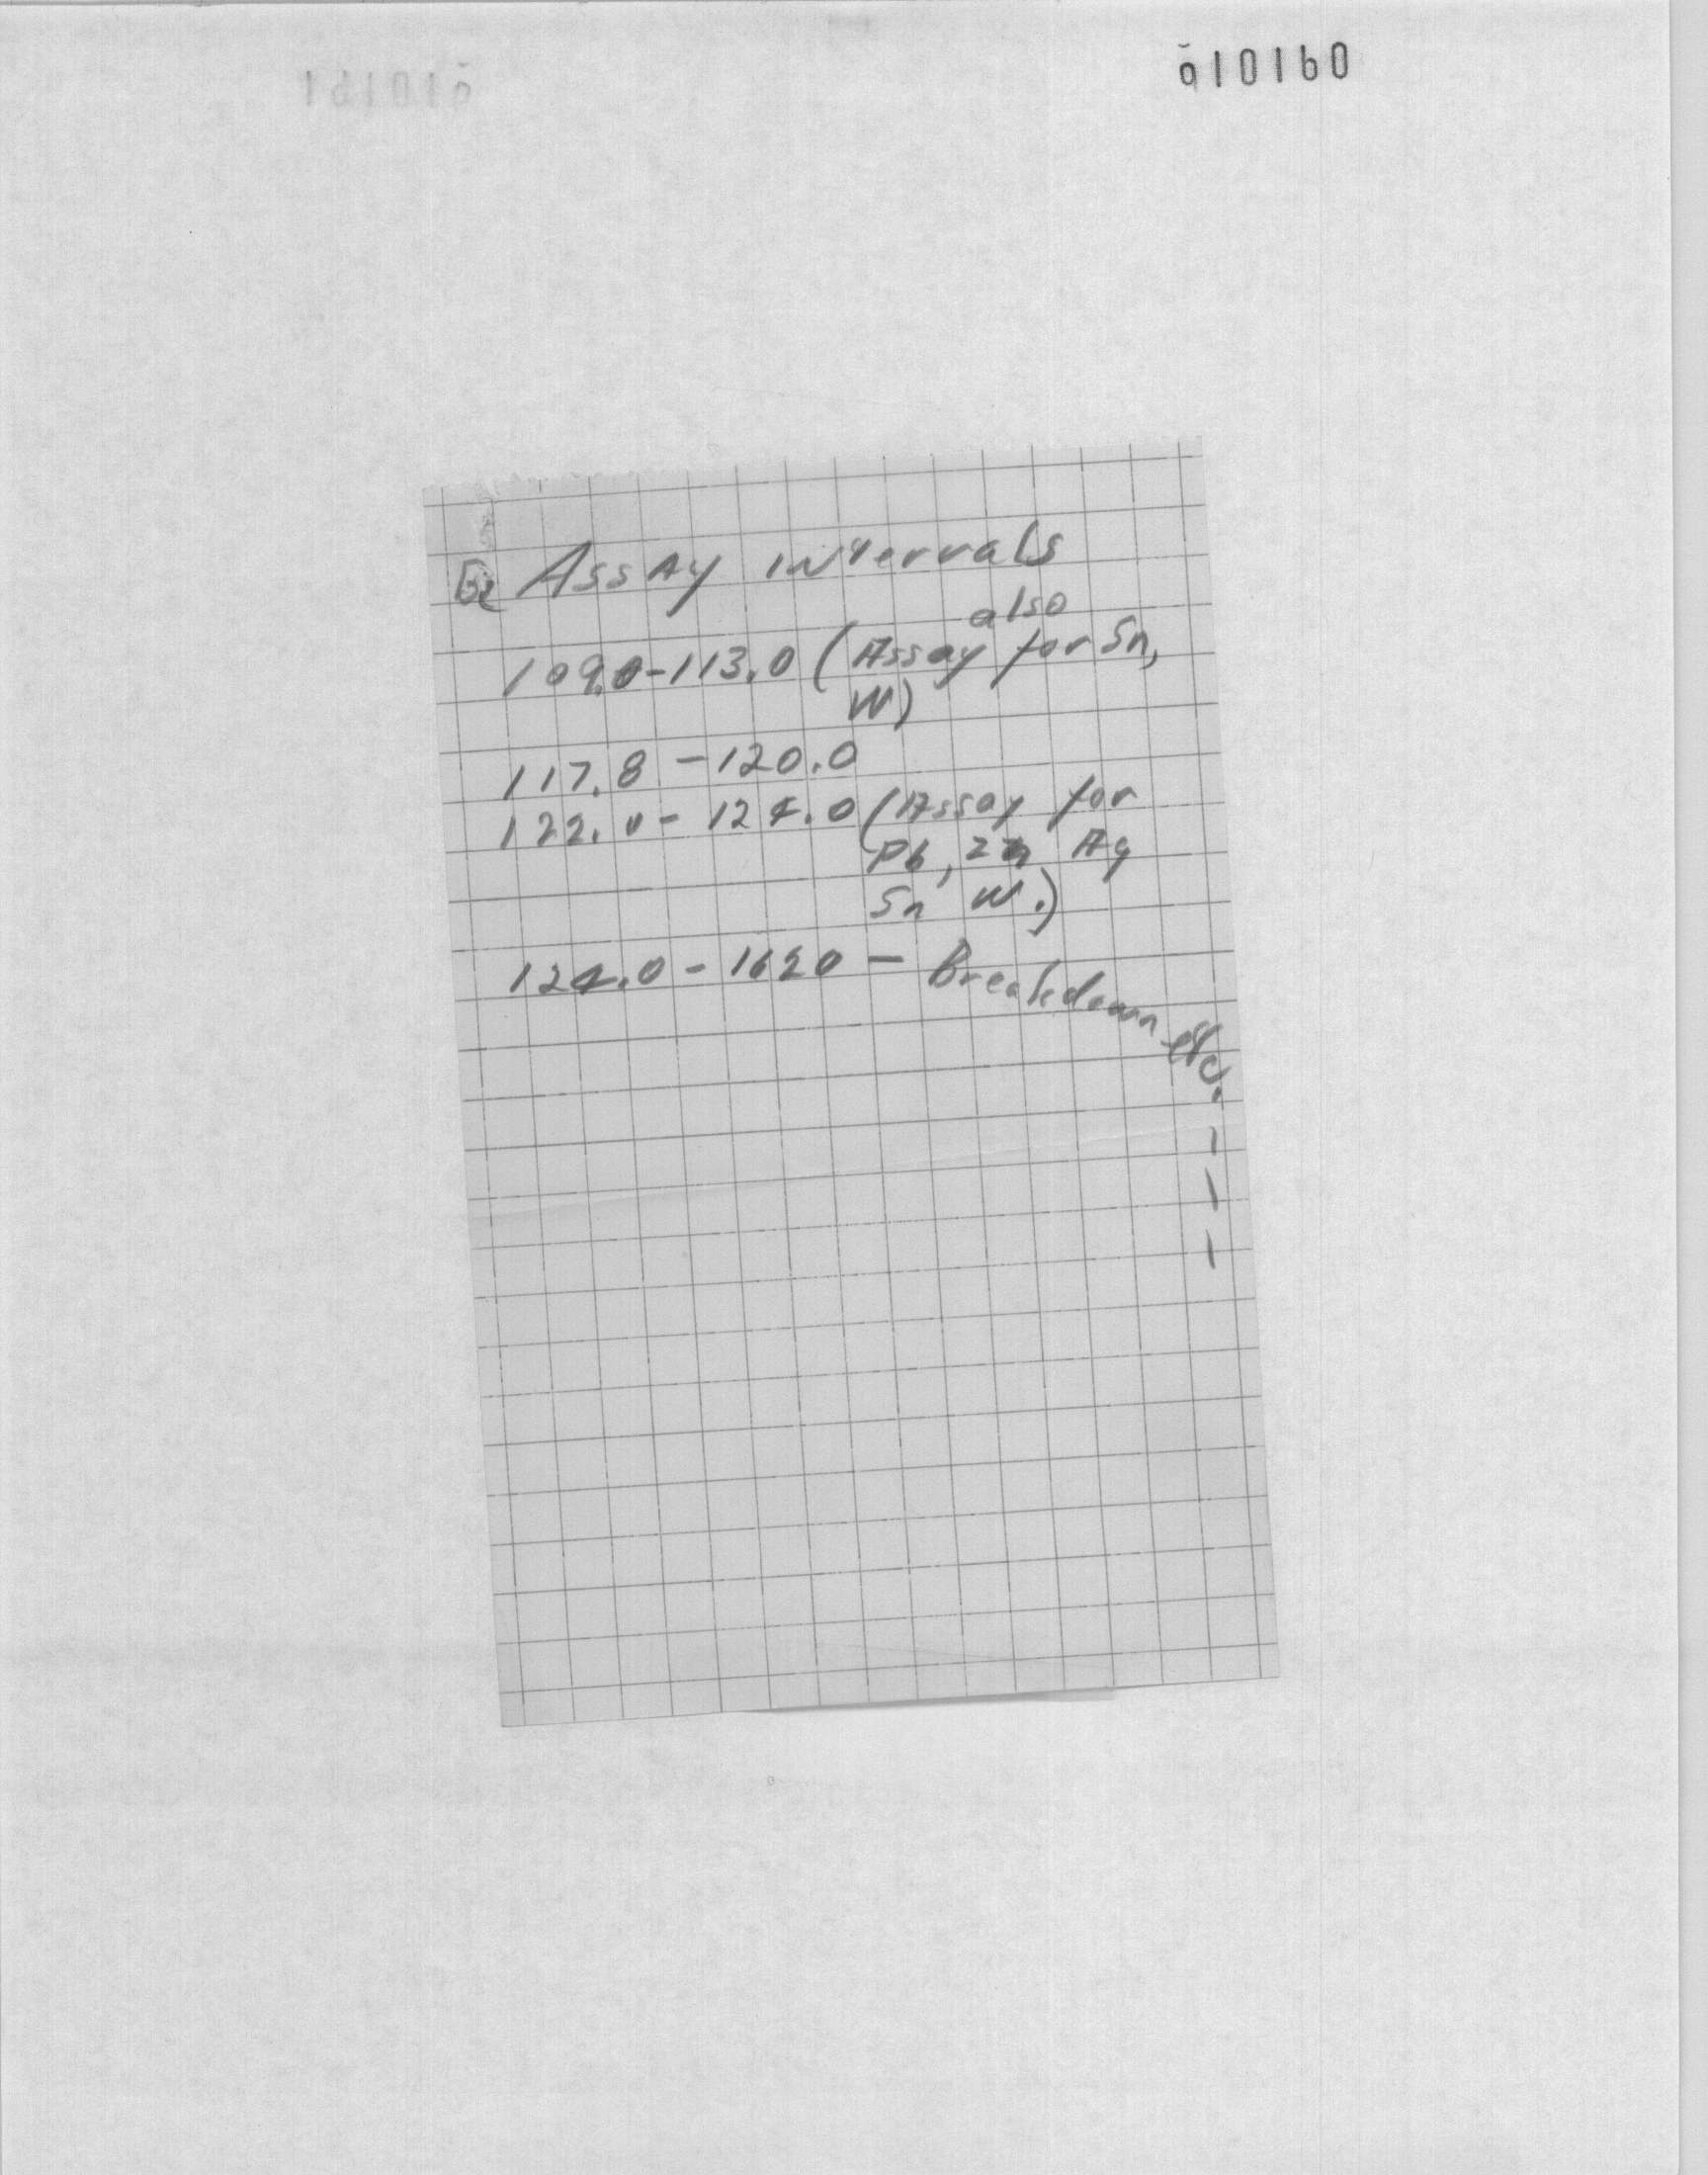 010160
Assay intervals
also
109.0-113.0 (Assay for Sn,
W)
117.8 - 120.0
122.0 - 124.0 (Assay for
Pb, Zn Ag
Sn W.)
124.0 - 162.0 - Breakdown etc.